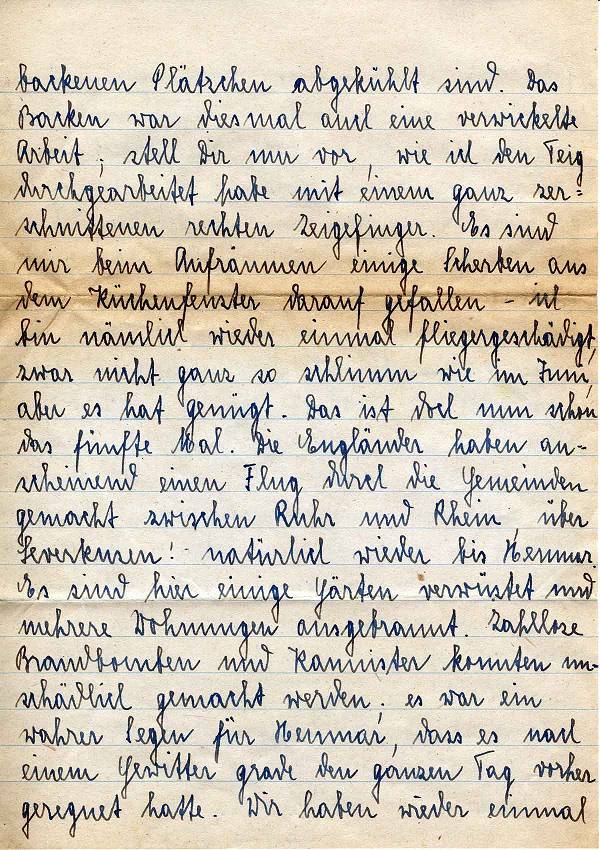 backenen Plätzchen abgekühlt sind. Das
Backen war diesmal auch eine verwickelte
Arbeit; stell Dir nur vor, wie ich den Teig
durchgearbeitet habe mit einem ganz zer=
schnittenen rechten Zeigefinger. Es sind
mir beim Aufräumen einige Scherben aus
dem Küchenfenster darauf gefallen - ich
bin nämlich wieder einmal fliegergeschädigt,
zwar nicht ganz so schlimm wie im Juni,
aber es hat genügt. Das ist doch nun schon
das fünfte Mal. Die Engländer haben an-
scheinend einen Flug durch die Gemeinden
gemacht zwischen Ruhr und Rhein, über
Leverkusen! - natürlich wieder bis Hemmar.
Es sind hier einige Gärten verwüstet und
mehrere Wohnungen ausgebrannt. Zahllose
Brandbomben und Kannister konnten un-
schädlich gemacht werden; es war ein
wahrer Segen für Hemmar, dass es nach
einem Gewitter grade den ganzen Tag vorher
geregnet hatte. Wir haben wieder einmal